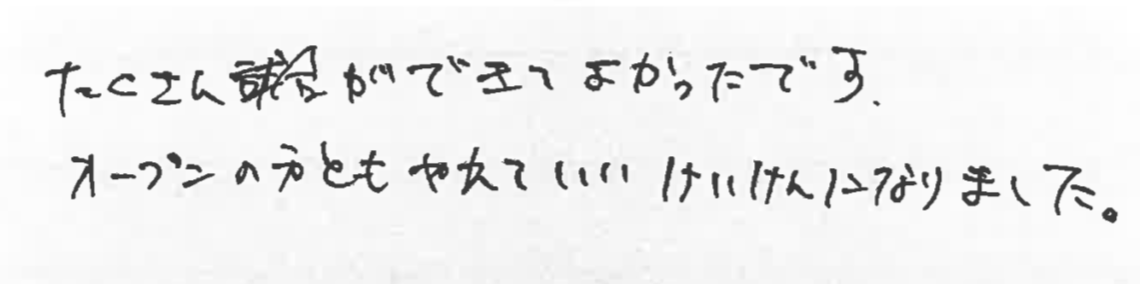 たくさん試合ができてよかったです.
オープンの方ともやれていいけいけんになりました。